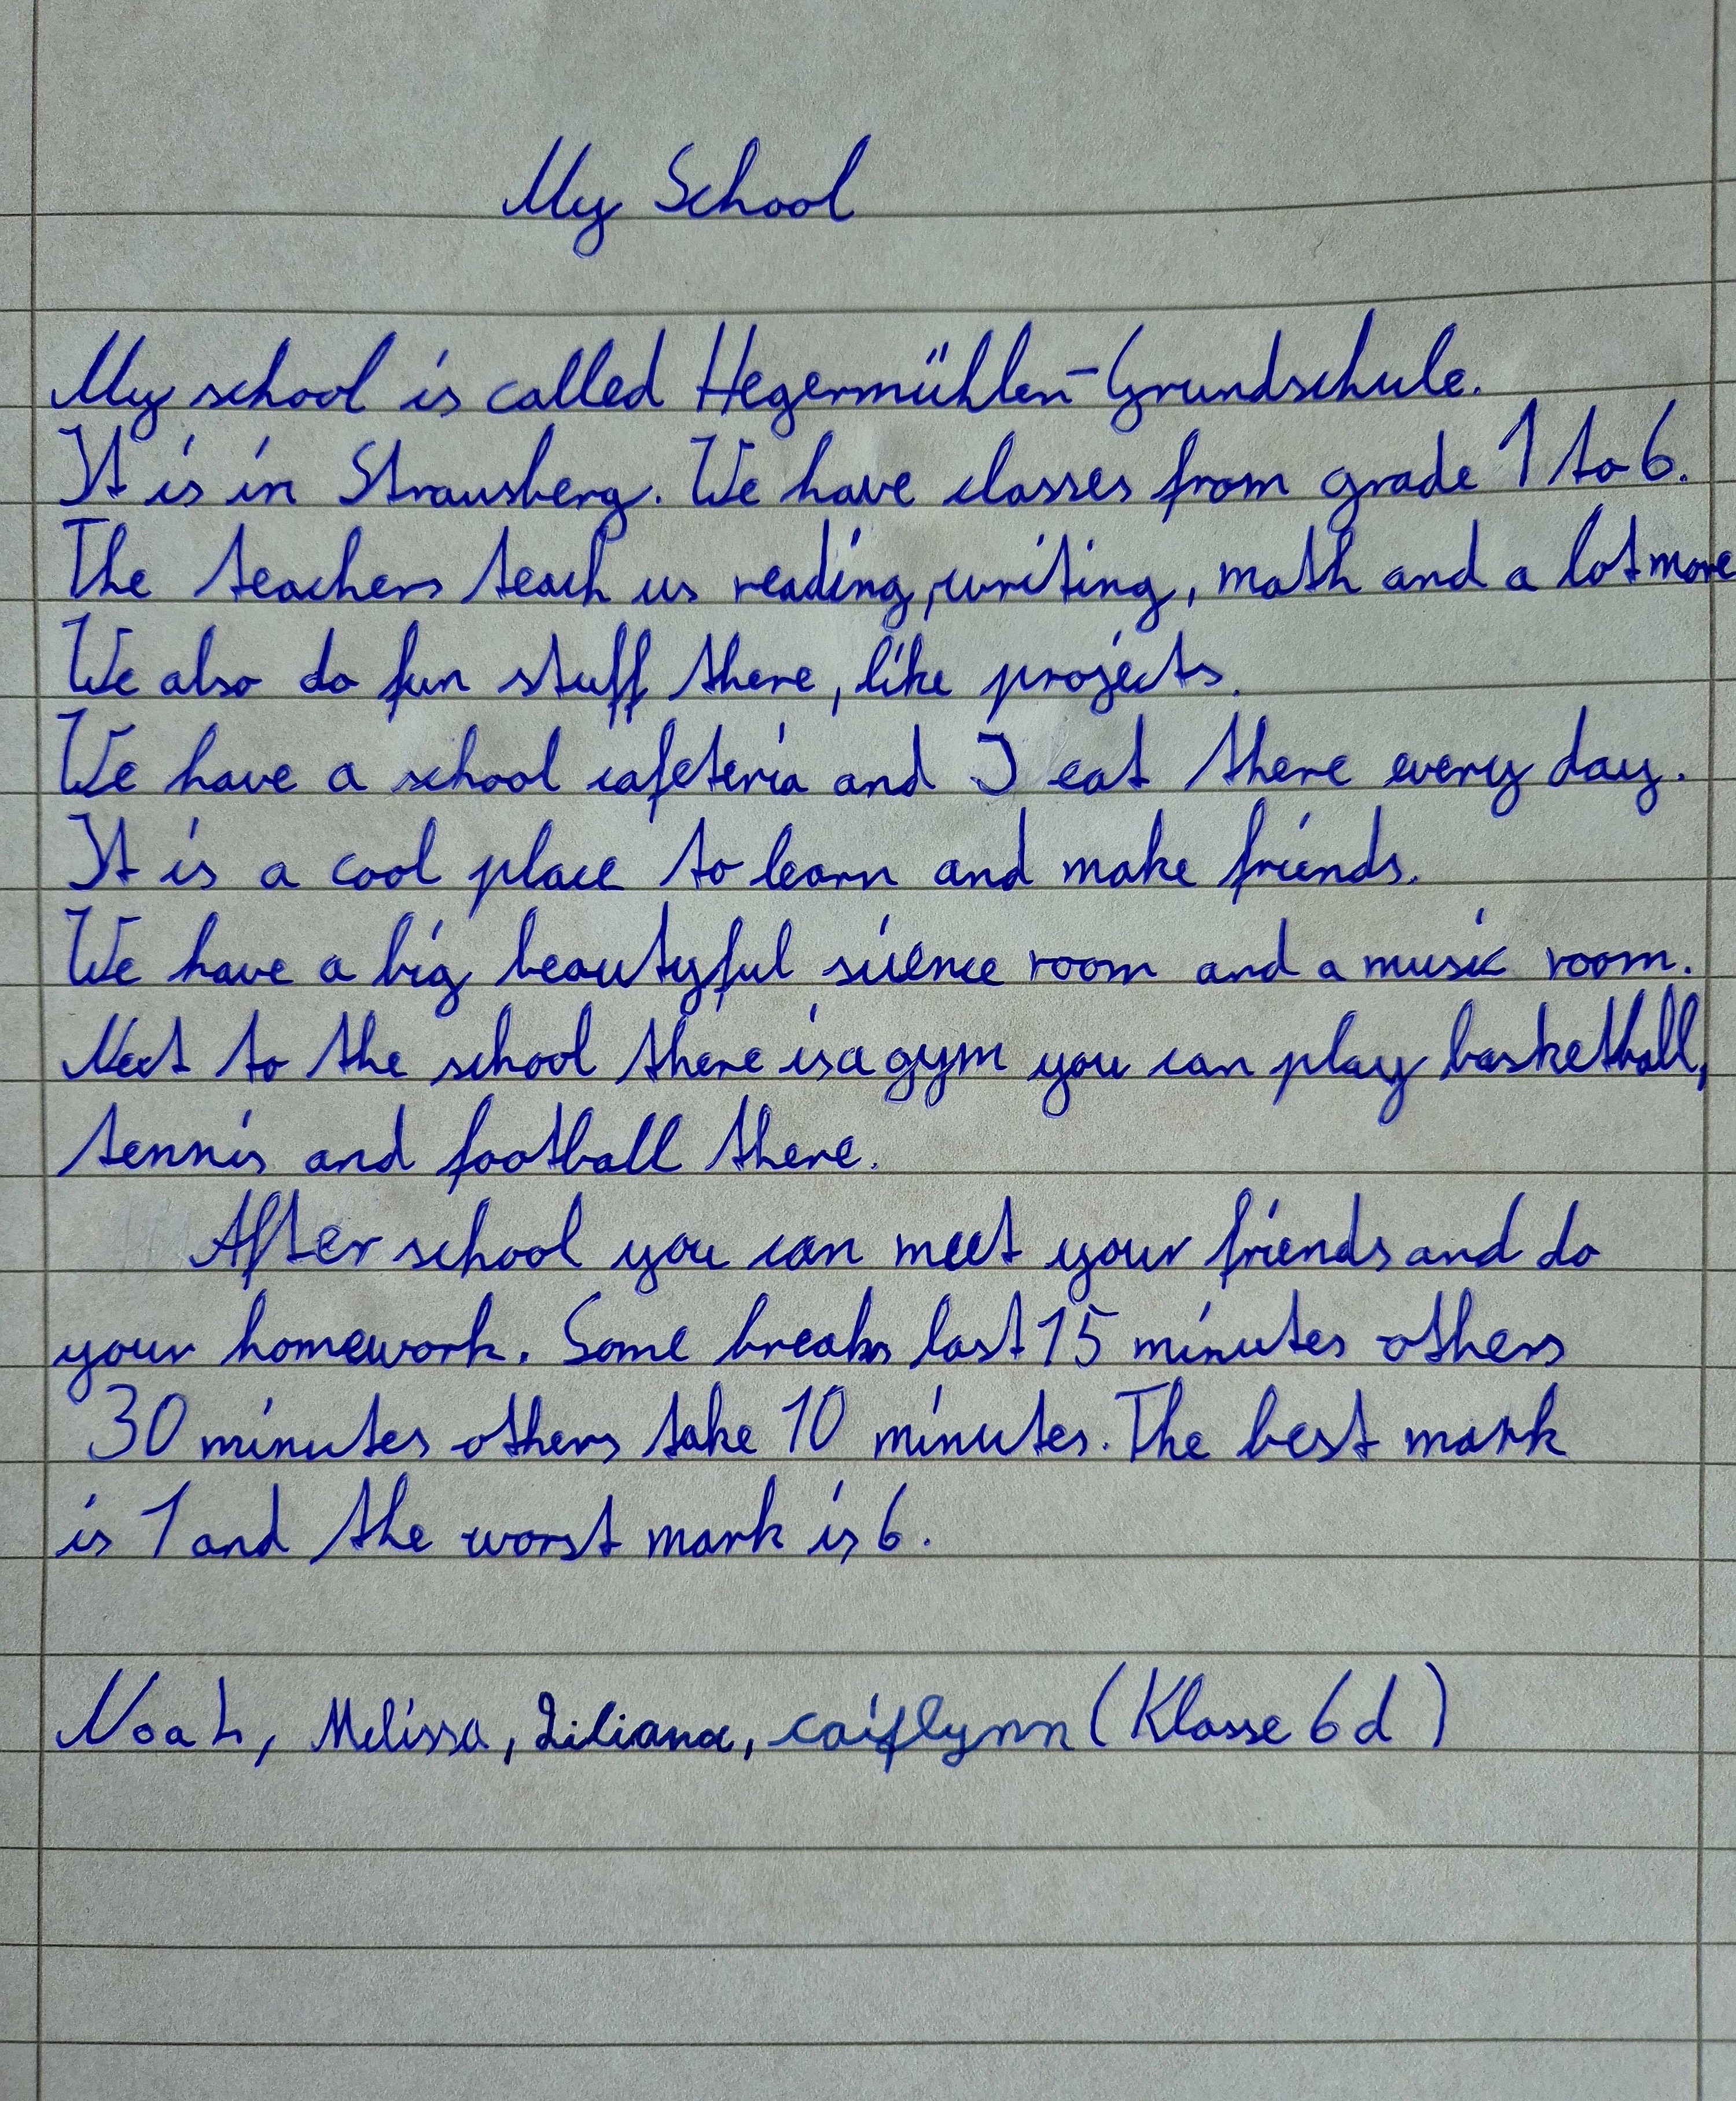 My School
My school is called Hegermühlen-Grundschule.
It is in Strausberg. We have classes from grade 1 to 6.
The teachers teach us reading, writing, math and a lot more
We also do fun stuff there, like projects.
We have a school cafeteria and I eat there every day.
It is a cool place to learn and make friends.
We have a big beautyful science room and a music room.
Next to the school there is a gym you can play basketball,
tennis and football there.
After school you can meet your friends and do
your homework. Some breaks last 15 minutes others
30 minutes others take 10 minutes. The best mark
is 1 and the worst mark is 6.
Noah, Melissa, Liliana, Caitlynn (Klasse 6d)